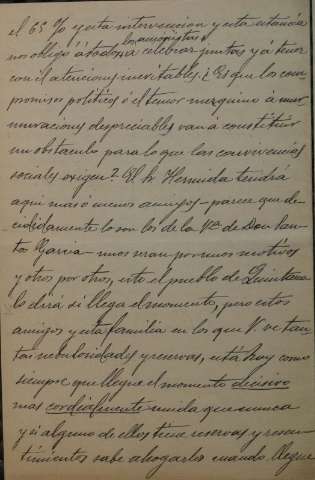 el 65 % y esta intervencion y esta estancia
los amigotes
nos obligó á todos á celebrar juntas y a tener
con él atenciones inevitables. ¿Es que los com-
promisos políticos ó el temor mezquino á mur-
muraciones despreciables van á constituir
un obstáculo para lo que las convivencias
sociales exigen? El Sr Hermida tendrá
aqui mas ó menos amigos - parece que de-
cididamente lo son los de la Vda de Don San-
tos Garcia - unos seran por unos motivos
y otros por otros, esto el pueblo de Quintana
lo dirá si llega el momento, pero estos
amigos y esta familia en los que V. ve tan-
tas nebulosidades y reservas, está hoy como
siempre que llegue el momento decisivo
mas cordialmente unida que nunca
y si alguno de ellos tiene reservas y resen-
timientos sabe ahogarlos cuando llegue